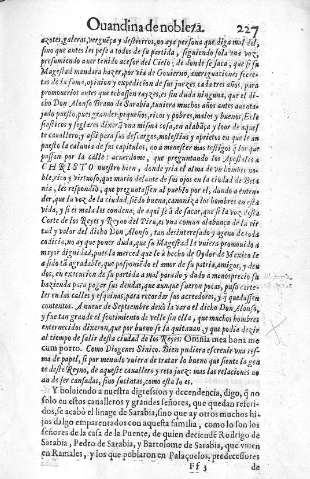 Ouandina de nobleza. 227
azotes, galeras, verguẽça y destierros, no aya persona que diga mal del,
sino que antes les pese a todos de su partida, siguiendo sola una voz,
presumiendo auer tenido acesor del Cielo; de donde se saca, que si su
Magestad mandara hazer, por via de Gouierno, aueriguaciones secre-
tas de la fama, opinion y expedicion de sus juezes cada tres años, para
promouerlos antes que echassen rayzes, es sin duda ninguna, que el di-
cho Don Alonso Brauo de Sarabia, tuuiera muchos años antes autoriza-
do puesto, pues grandes, pequeños, ricos y pobres, malos y buenos, Ecle-
siasticos y seglares dixerõ una misma cosa, en alabãça y loor de aquel-
te cauallero, y assi para sus descargos, molestias y aprietos en que le an
puesto la calunia de sus capitulos, no à menester mas testigos q̃ los que
passan por la calle: acuerdome, que preguntando los Apostoles a
CHRISTO nuestro bien, donde seria el alma de un hombre no-
ble, rico y virtuoso, que murio delante de sus ojos en la ciudad de Beta-
nia, les respondio, que preguntassen al pueblo por el, dando a enten-
der, que la voz de la ciudad, siẽdo buena, canoniza los hombres en esta
vida, y si es mala los condena, de aqui se à de sacar, que si la voz desta
Corte de los Reyes y Reyno del Piru, es una comun alabança de la vir-
tud y valor del dicho Don Alonso, tan desinteressado y ageno de toda
codicia, no ay que poner duda, que su Magestad le vuiera promouido a
mayor dignidad, pues la merced que le à hecho de Oydor de Mexico le
à sido tã agradable, que posponiẽdo el amor de su patria, amigos, y deu-
dos, en execucion de su partida a mal parado y dado a menosprecio su
hazienda para pagar sus deudas, que aunque fueron pocas, puso carte-
les en las calles y esquinas, para recordar los acredores, y q̃ quedassen
contentos. A nueue de Septiembre dexò la vara el dicho Don Alonso,
y fue tan grande el sentimiento de velle sin ella, que muchos hombres
enternecidos dixeron, que por bueno se la quitauan, y que podia dezir
al tiempo de salir desta ciudad de los Reyes: Omnia mea bona me
cum porto. Como Diogenes Sinico. Bien pudiera ofrecerle una res-
ma de papel, si por menudo vuiera de tratar lo bueno que siente la gen
te deste Reyno, de aqueste cauallero y reto juez: mas las relaciones no
an de ser cansadas, sino sucintas, como esta lo es.
Y boluiendo a nuestra digression y decendencia, digo, q̃ no
solo en estos caualleros y grandes señores, que quedan referi-
dos, se acabò el linage de Sarabia, sino que ay otros muchos hi-
jos dalgo emparentados con aquesta familia, como lo son los
señores de la casa de la Puente, de quien deciende Rodrigo de
Sarabia, Pedro de Sarabia, y Bartolome de Sarabia, que viuen
en Ramales, y los que poblaron en Palaçuelos, predecessores
Ff 3 de